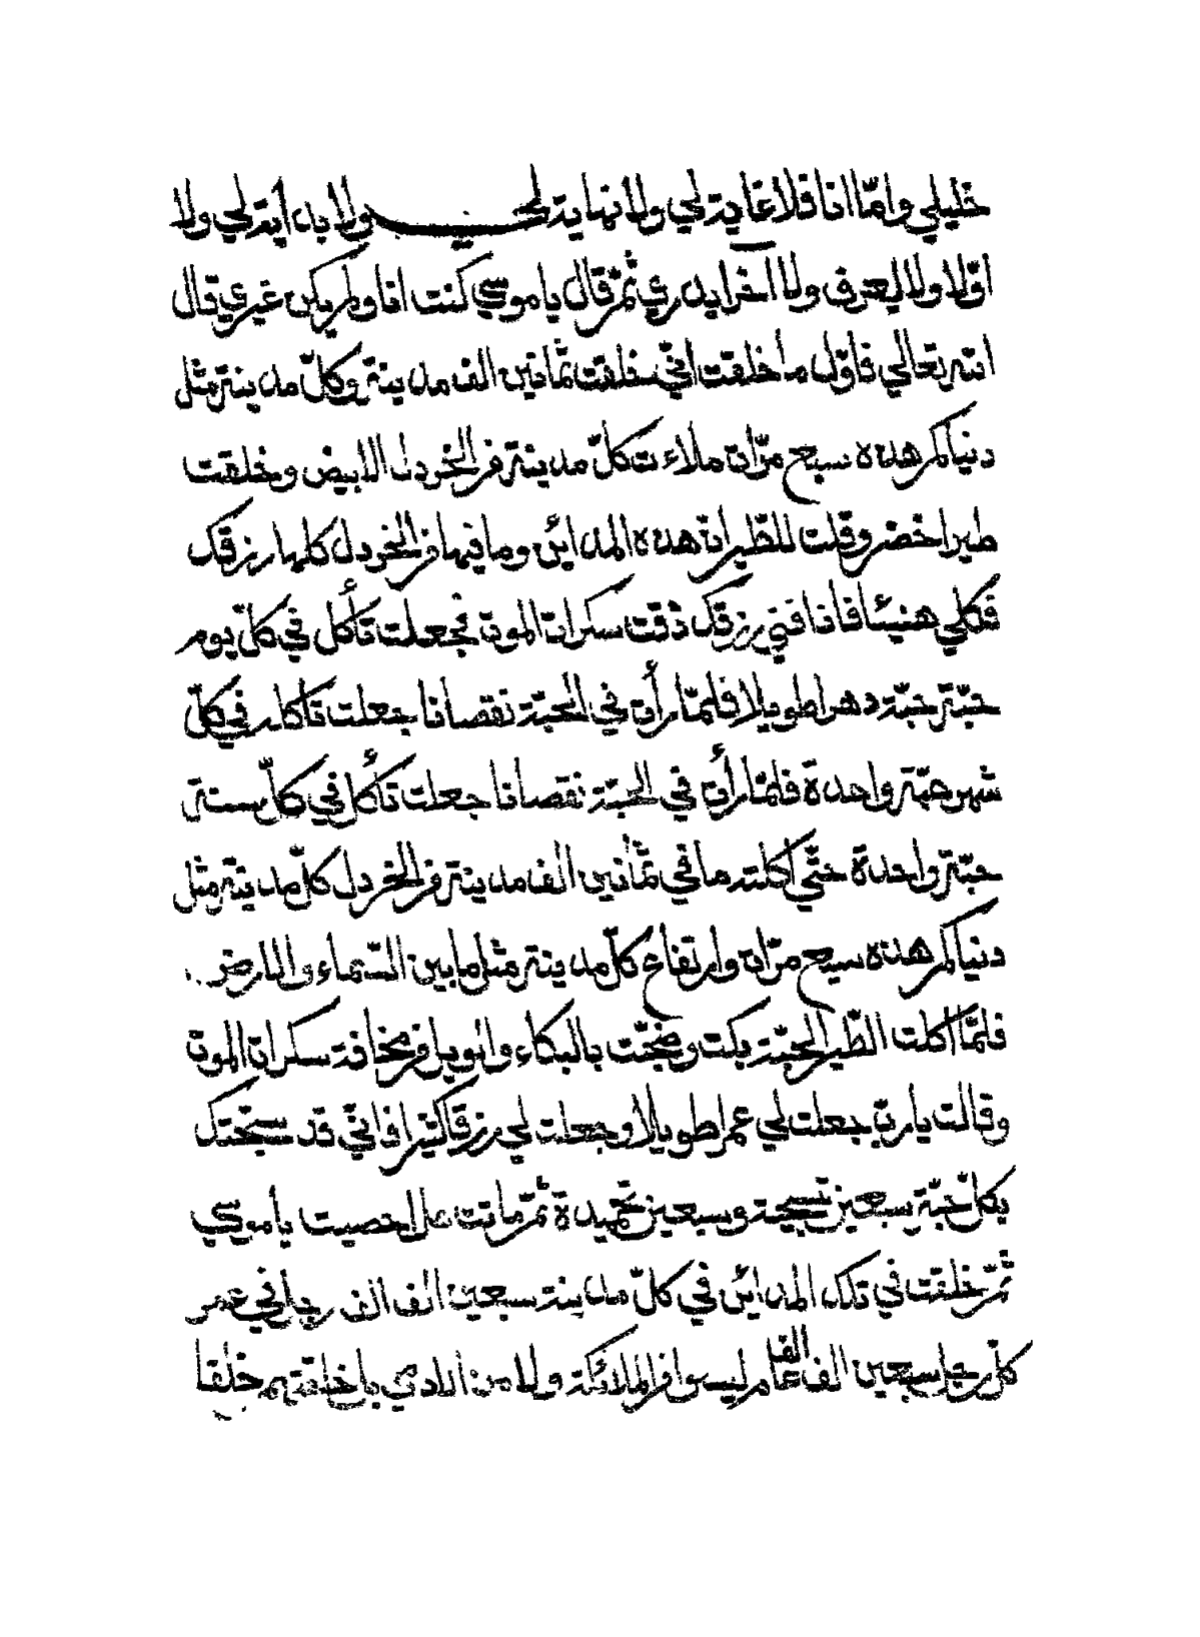 خليلي وامّا انا فلا غاية لي ولا نهاية لحسني ولا بداية لي ولا
اوّلا ولا يعرف ولا آخرا يدري ثمّ قال يا موسي كنت انا ولم يكن غيري قال
الله تعالي فاوّل ما خلقت انّي خلقت ثمانين الف مدينة وكلّ مدينة مثل
دنياكم هذه سبع مرّات ملاءت كلّ مدينة من الخردل الابيض وخلقت
طيرا خضر وقلت للطّير انّ هذه المدائن وما فيها من الخردل كلها رزقك
فكلي هنيئا فاذا فني رزقك ذقت سكرات الموت فجعلت تأكل في كلّ يوم
حبّة حبّة دهرا طويلا فلمّا رأت في الحبّة نقصانا جعلت تاكل في كلّ
شهر حبّة واحدة فلمّا رأت في الحبّة نقصانا جعلت تأكل في كلّ سنة
حبّة واحدة حتّي اكلت ما في ثمانين الف مدينة من الخردل كلّ مدينة مثل
دنياكم هذه سبع مرّات وارتفاع كلّ مدينة مثل ما بين السّماء والارض ..
فلمّا اكلت الطّير الحبّة بكت وضجّت بالبكاء والويل من مخافة سكرات الموت
وقالت يا ربّ جعلت لي عمرا طويلا وجعلت لي رزقا كثيرا فانّي قد سبّحتك
بكلّ حبّة سبعين تسبيحة وسبعين تحميدة ثمّ ماتت يا موسي
ثمّ خلقت في تلك المدائن في كلّ مدينة سبعين الف الف رجل في عمر
كلّ رجل سبعين الف الف عام ليسوا من الملائكة ولا من الادمي بل خلقتهم خلقا